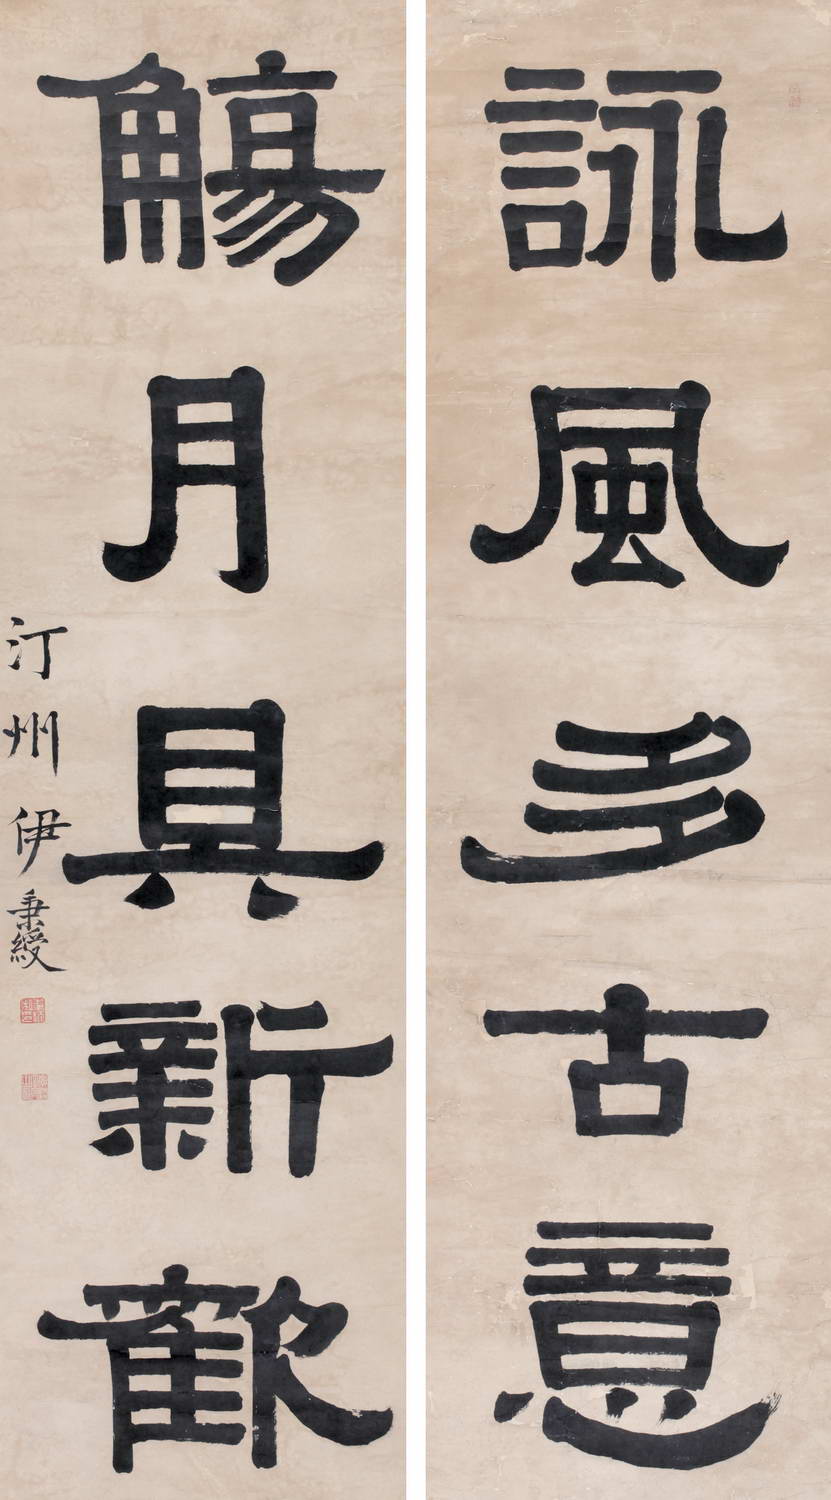 詠風多古意
觴月具新歡
汀州伊秉綬